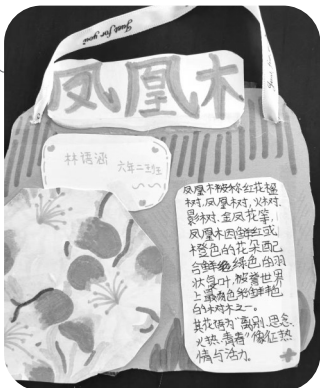 Just for you
凤凰木
林语涵 六年二班
凤凰木被称红花楹
树、凤凰树、火树、
影树、金凤花等,
凤凰木因鲜红或
橙色的花朵配
合鲜绿色的羽
状复叶,被誉世界
上最色彩鲜艳
的树木之一。
其花语为“离别、思念、
火热青春”像征热
情与活力。